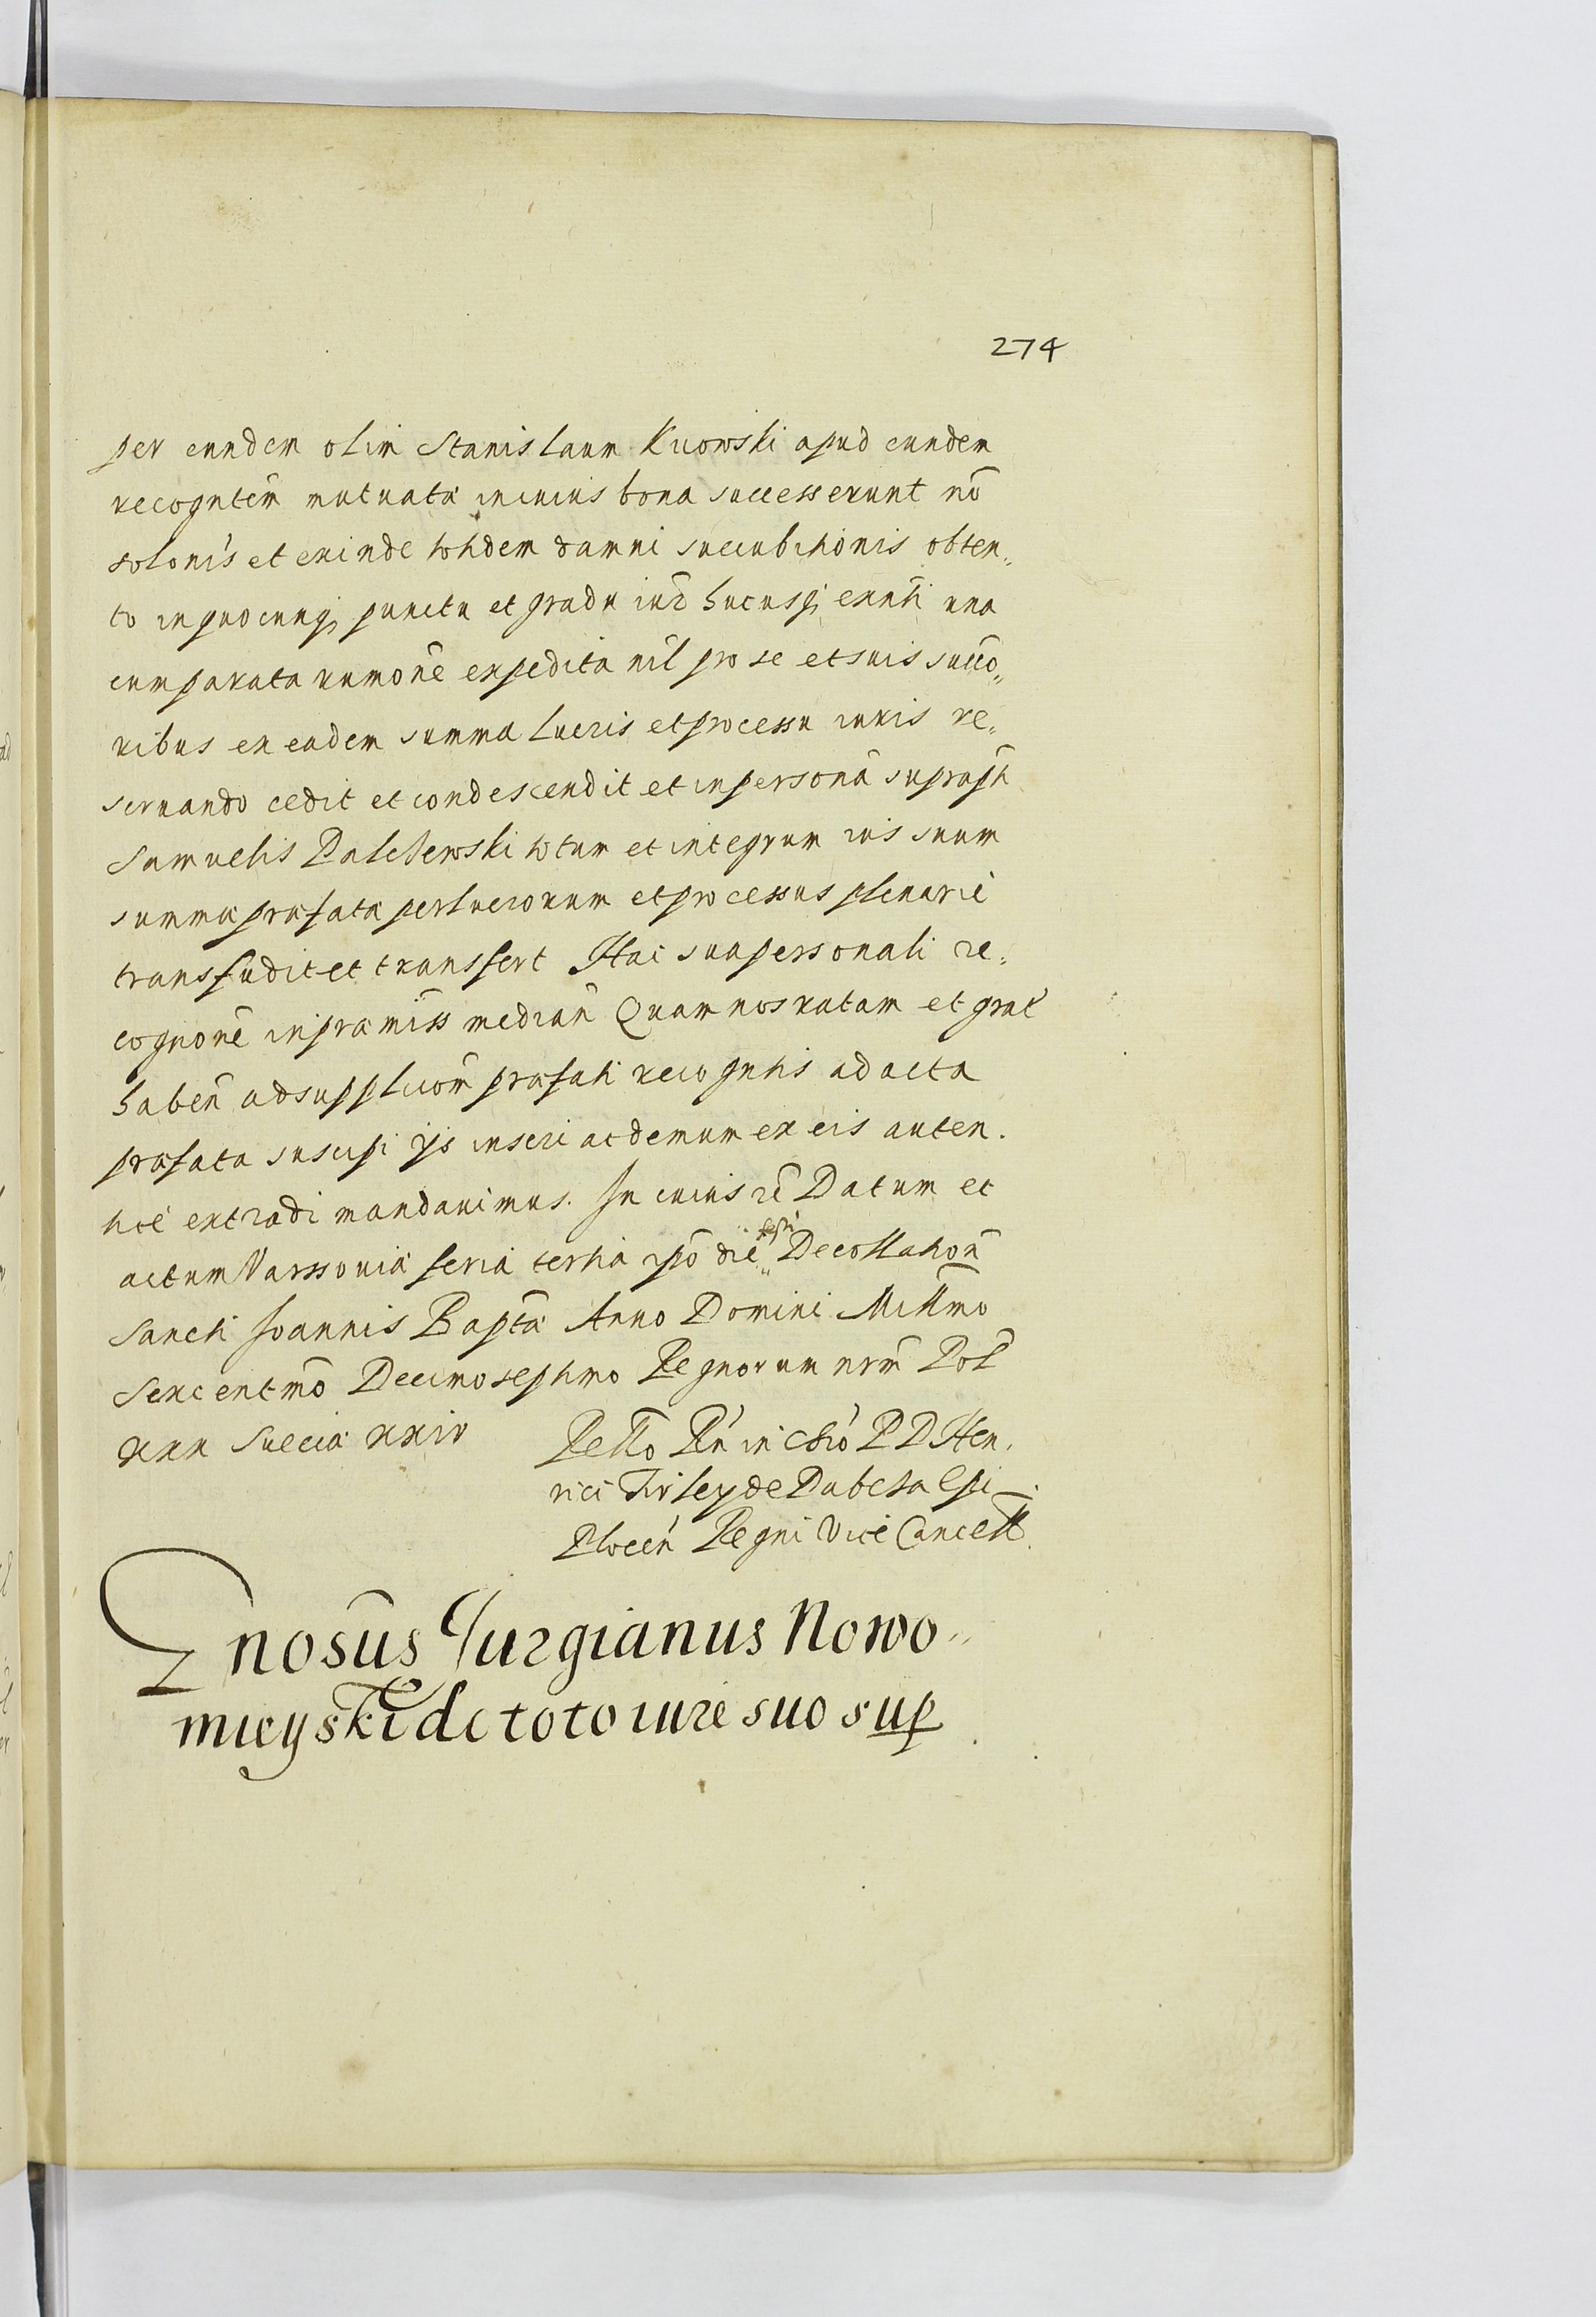 274
per eundem olim Stanislaum Kuowski apud eundem
recogntem mutuata in cuius bona successerunt nō
solonis et exinde totidem damni succubitionis obten„
to in quocunq puncto et gradu iur̄ hucusq exnti una
cum parata numone expedita nil pro se et suis succo„
ribus ex eadem summa lucris et processu iuris re„
seruando cedit et condescendit et in persona suprasti
Samuelis Palczewski totum et integrum ius suum
summa præfata perlucrorum et processus plenarie
transfudit et transfert Hac sua personali re„
cognone in præmiss median Quam nos ratam et grat
haben ad supplicōm præfati recogntis ad acta
præfata suscipi ijs inseri ac demum ex eis auten.
tice extradi mandauimus. In cuius rē Datum et
actum Varssouiæ feria tertia ipō die festi Decollationē
Sancti Joannis Baptæ Anno Domini Millmo
Sexcentmō Decimoseptimo Regnorum nrm̄ Pol
xxx Sueciæ xxiv
Rello Rn in Chrō P D Hen.
rici Firley de Dabcza Epi
Plocen Regni Vice Cancell.
Gnosūs Jurgianus Nowo„
mieyski de toto iure suo sup